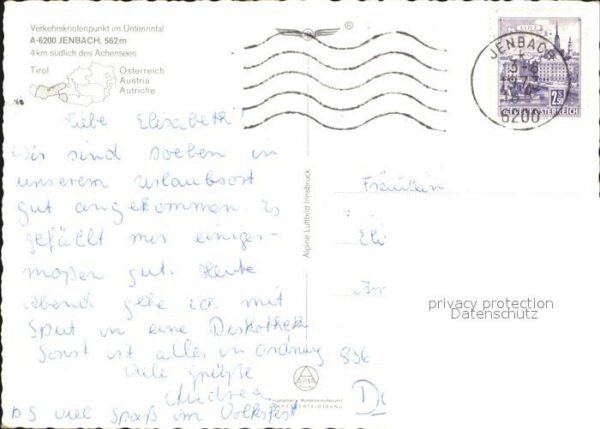 Verkehrsknotenpunkt im Unterinntal
A-6200 JENBACH, 562m
4 km südlich des Achensees
Tirol
Österreich
Austria
Autriche
®
LINZ
2.50
REPUBLIK ÖSTERREICH
JENBACH
6200
Liebe Elisabeth!
Wir sind soeben in
unserem Urlaubsort
gut angekommen. Es
gefällt mir einiger-
maßen gut. Heute
Abend gehe ich mit
in eine Diskothek
Sonst ist alles in Ordnung
Viele Grüße
Andrea
PS viel Spaß im Volksfest
Alpine Luftbild Innsbruck
Fräulein
Eli
836
D
privacy protection
Datenschutz